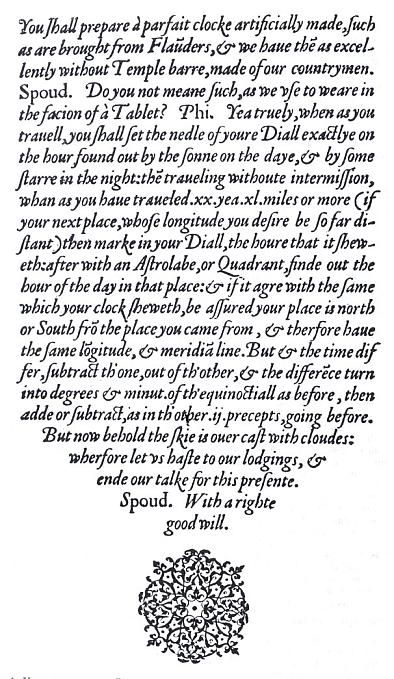 You ſhall prepare à parfait clocke artificially made, ſuch
as are brought from Flaũders, & we haue thẽ as excel-
lently without Temple barre, made of our countrymen.
Spoud. Do you not meane ſuch, as we vſe to weare in
the facion of à Tablet? Phi. Yea truely, when as you
trauell, you ſhall ſet the nedle of youre Diall exactlye on
the hour found out by the ſonne on the daye, & by ſome
ſtarre in the night: thẽ traueling withoute intermiſſion,
whan as you haue traueled .xx. yea .xl. miles or more (if
your next place, whoſe longitude you deſire be ſo far di-
ſtant) then marke in your Diall, the houre that it ſhew-
eth: after with an Aſtrolabe, or Quadrant, finde out the
hour of the day in that place: & if it agre with the ſame
which your clock ſheweth, be aſſured your place is north
or South frõ the place you came from, & therfore haue
the ſame lõgitude, & meridiã line. But & the time dif
fer, ſubtract th'one, out of th'other, & the differẽce turn
into degrees & minut. of th'equinoctiall as before, then
adde or ſubtract, as in th'other .ij. precepts, going before.
But now behold the ſkie is ouer caſt with cloudes:
wherfore let vs haſte to our lodgings, &
ende our talke for this preſente.
Spoud. With a righte
good will.